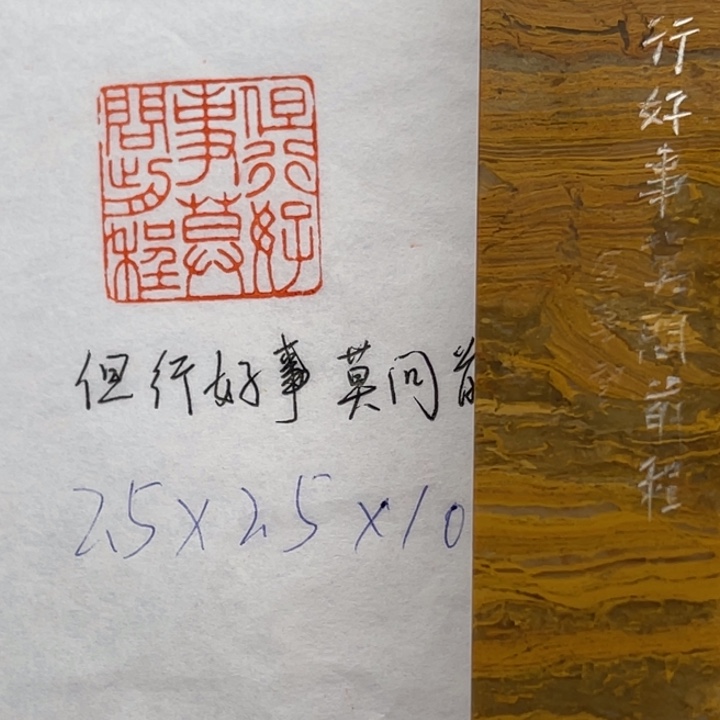 但行好事莫問前程
但行好事 莫问前
2.5×2.5×10
行好事莫問前程